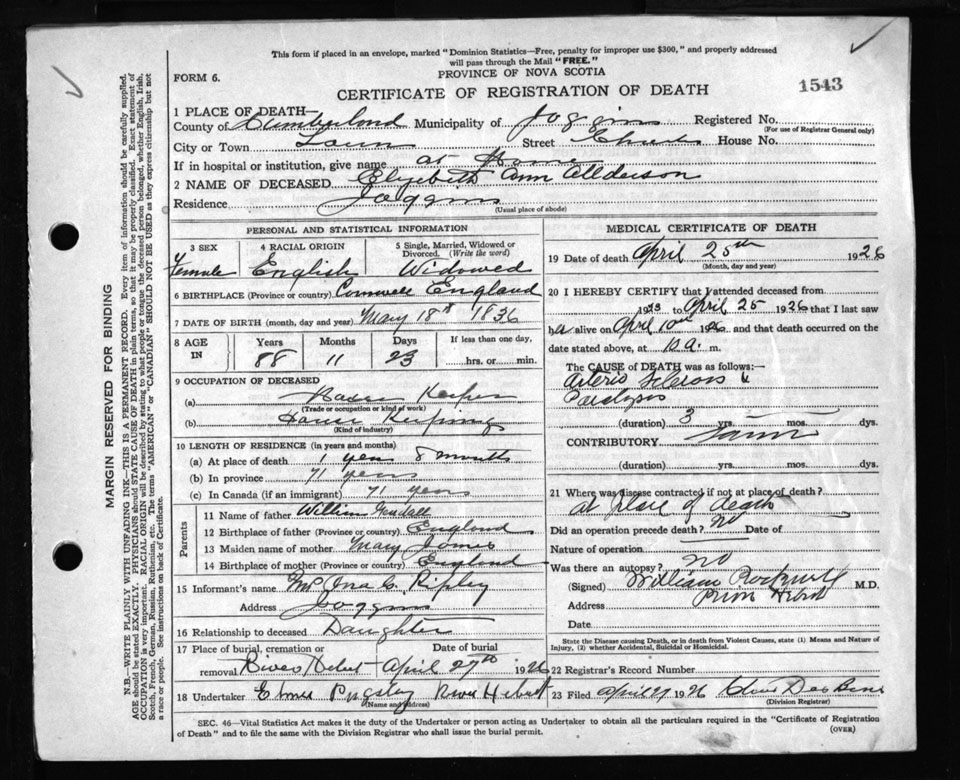 This form if placed in an envelope, marked "Dominion Statistics—Free, penalty for improper use $300," and properly addressed
will pass through the Mail "FREE."
FORM 6.
PROVINCE OF NOVA SCOTIA
1543
CERTIFICATE OF REGISTRATION OF DEATH
1 PLACE OF DEATH
County of Cumberland Municipality of Joggins Registered No.
(For use of Registrar General only)
City or Town Town Street House No.
If in hospital or institution, give name at Home
2 NAME OF DECEASED Elizabeth Ann Allderson
Residence Joggins
(Usual place of abode)
PERSONAL AND STATISTICAL INFORMATION
3 SEX
Female
4 RACIAL ORIGIN
English
5 Single, Married, Widowed or
Divorced. (Write the word)
Widowed
6 BIRTHPLACE (Province or country) England
7 DATE OF BIRTH (month, day and year) May 18th 1836
8 AGE IN
Years Months Days If less than one day,
88 11 23 hrs. or min.
9 OCCUPATION OF DECEASED
(a) House Keeper
(Trade or occupation or kind of work)
(b) House Keeping
(Kind of industry)
10 LENGTH OF RESIDENCE (in years and months)
(a) At place of death 1 year 8 months
(b) In province 71 years
(c) In Canada (if an immigrant) 71 years
Parents
11 Name of father William
12 Birthplace of father (Province or country) England
13 Maiden name of mother Mary James
14 Birthplace of mother (Province or country) England
15 Informant's name C. Ripley
Address Joggins
16 Relationship to deceased Daughter
17 Place of burial, cremation or Date of burial
removal River Hebert April 27th 1926
18 Undertaker Pugsley River Hebert
(Name and address)
MEDICAL CERTIFICATE OF DEATH
19 Date of death April 25th 1926
(Month, day and year)
20 I HEREBY CERTIFY that I attended deceased from
1923 to April 25 1926 that I last saw
her alive on April 10th 1926 and that death occurred on
date stated above, at 10 a. m.
The CAUSE of DEATH was as follows:
Arterio Sclerosis &
Paralysis
(duration) 3 yrs. mos. dys.
CONTRIBUTORY
(duration) yrs. mos. dys.
21 Where was disease contracted if not at place of death?
at place of death
Did an operation precede death? no Date of
Nature of operation
Was there an autopsy? no
(Signed) William Rockwell M.D.
Address River Hebert
Date
State the Disease causing Death, or in death from Violent Causes, state (1) Means and Nature of
Injury, (2) whether Accidental, Suicidal or Homicidal.
22 Registrar's Record Number
23 Filed April 27 1926
(Division Registrar)
SEC. 46—Vital Statistics Act makes it the duty of the Undertaker or person acting as Undertaker to obtain all the particulars required in the "Certificate of Registration
of Death" and to file the same with the Division Registrar who shall issue the burial permit.
(OVER)
MARGIN RESERVED FOR BINDING
N.B.—WRITE PLAINLY WITH UNFADING INK—THIS IS A PERMANENT RECORD. Every item of information should be carefully supplied.
AGE should be stated EXACTLY. PHYSICIANS should STATE CAUSE OF DEATH in plain terms, so that it may be properly classified. Exact statement of
OCCUPATION is very important. RACIAL ORIGIN will be described by stating to what people or tongue the deceased person belonged, whether English, Irish,
Scotch, French, German, Russian, Ruthenian, etc. The terms "AMERICAN" or "CANADIAN" SHOULD NOT BE USED as they express citizenship but not
a race or people. See instructions on back of Certificate.